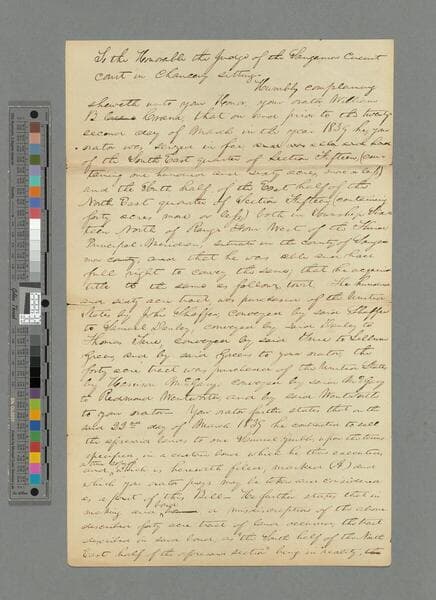 To the Honorable the Judge of the Sangamon Circuit
court in Chancery sitting.
Humbly complaining
sheweth unto your Honor, your orator William
B. Evans, that on and prior to the twenty
second day of March in the year 1837 he, your
orator was seized in fee and was
of the South East quarter of Section Fifteen (con-
taining one hundred and sixty acres more or less)
and the South half of the East half of the
North East quarter of Section Fifteen (containing
forty acres, more or less) both in Township
North of Range Four West of the Third
Principal Meridian, situate in the county of Sanga-
mon county, and that he was able and had
full right to convey the same; that he acquired
title to the same as follows, to wit. The hundred
and sixty acre tract was purchased of the United
States by John Shaffer conveyed by said Shaffer
to Samuel Danley, conveyed by said Danley to
Thomas conveyed by said to
Green and by said Green to your orator, the
forty acre tract was purchased of the United States
by conveyed by said
to Redmond Wentworth and by said Wentworth
to your orator. Your orator further states that on the
said 22nd day of March 1837 he contracted to sell
the aforesaid lands to one upon the terms
specified in a certain bond which he then executed,
and, a copy of which is herewith filed, marked (A) and
which your orator prays may be taken and considered
as a part of this Bill. He further states that in
making said bond a misdescription of the above
described forty acre tract of land occurred, the tract
described in said bond, as "the South half of the North
East half of the aforesaid section" being in reality,